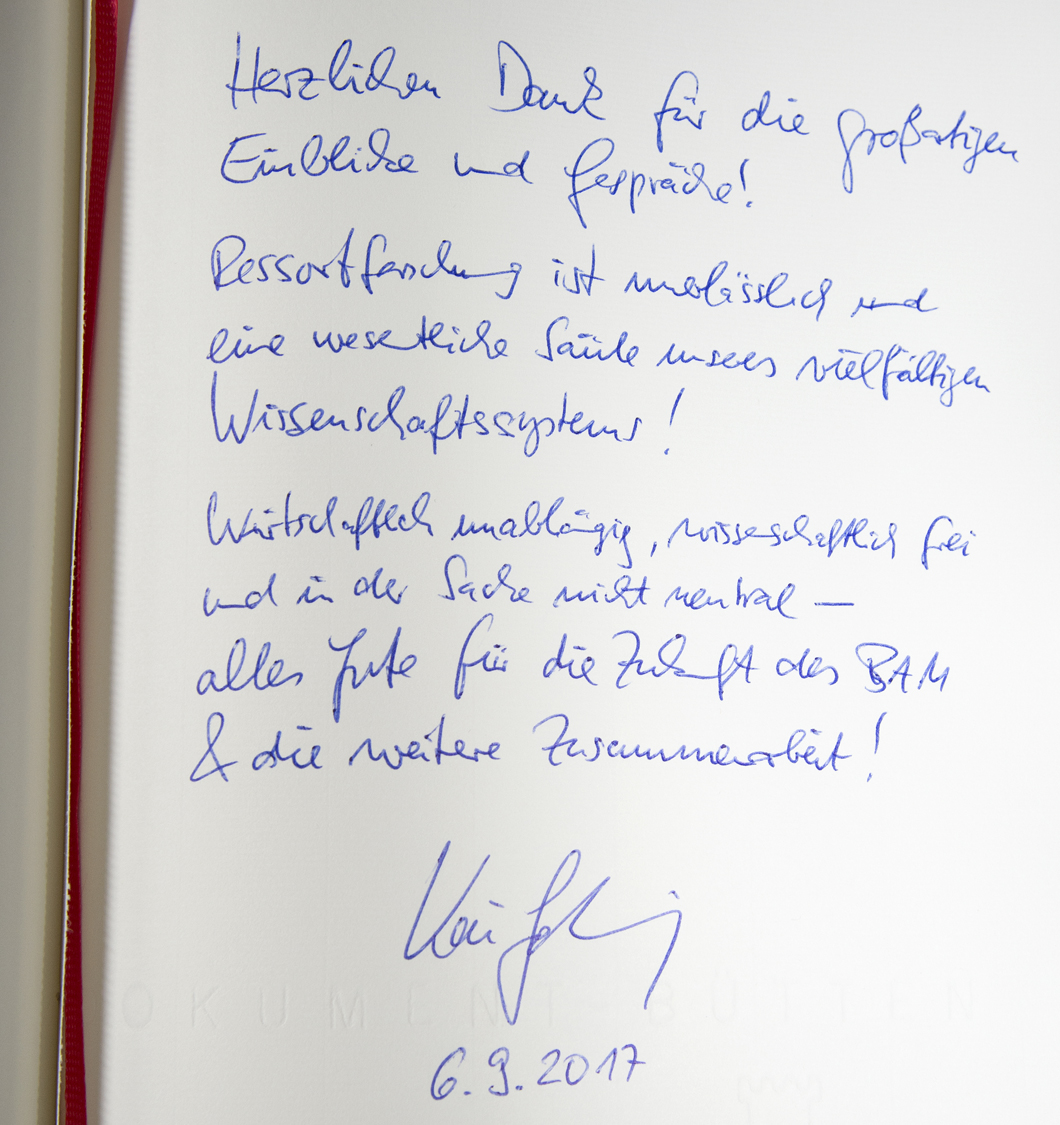 Herzlichen Dank für die großartigen
Einblicke und Gespräche!
Ressortforschung ist unerlässlich und
eine wesentliche Säule unseres vielfältigen
Wissenschaftssystems!
Wirtschaftlich unabhängig, wissenschaftlich frei
und in der Sache nicht neutral –
alles Gute für die Zukunft des BAM
& die weitere Zusammenarbeit!
Kai
OKUMENT-BÜTTEN
6.9.2017